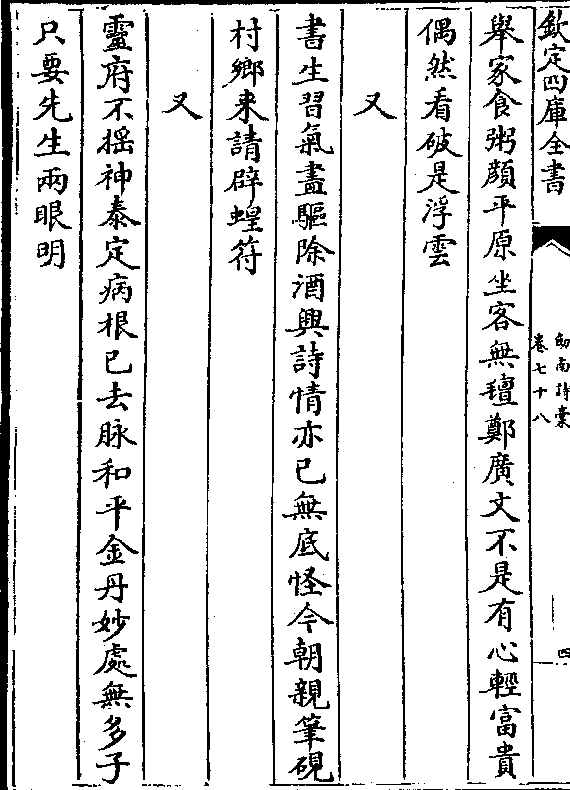 欽定四庫全書
劒南詩稾
卷七十八
四
舉家食粥顔平原坐客無氊鄭廣文不是有心輕富貴
偶然看破是浮雲
又
書生習氣盡驅除酒興詩情亦已無底怪今朝親筆硯
村鄉來請辟蝗符
又
靈府不揺神泰定病根已去脉和平金丹妙處無多子
只要先生兩眼明